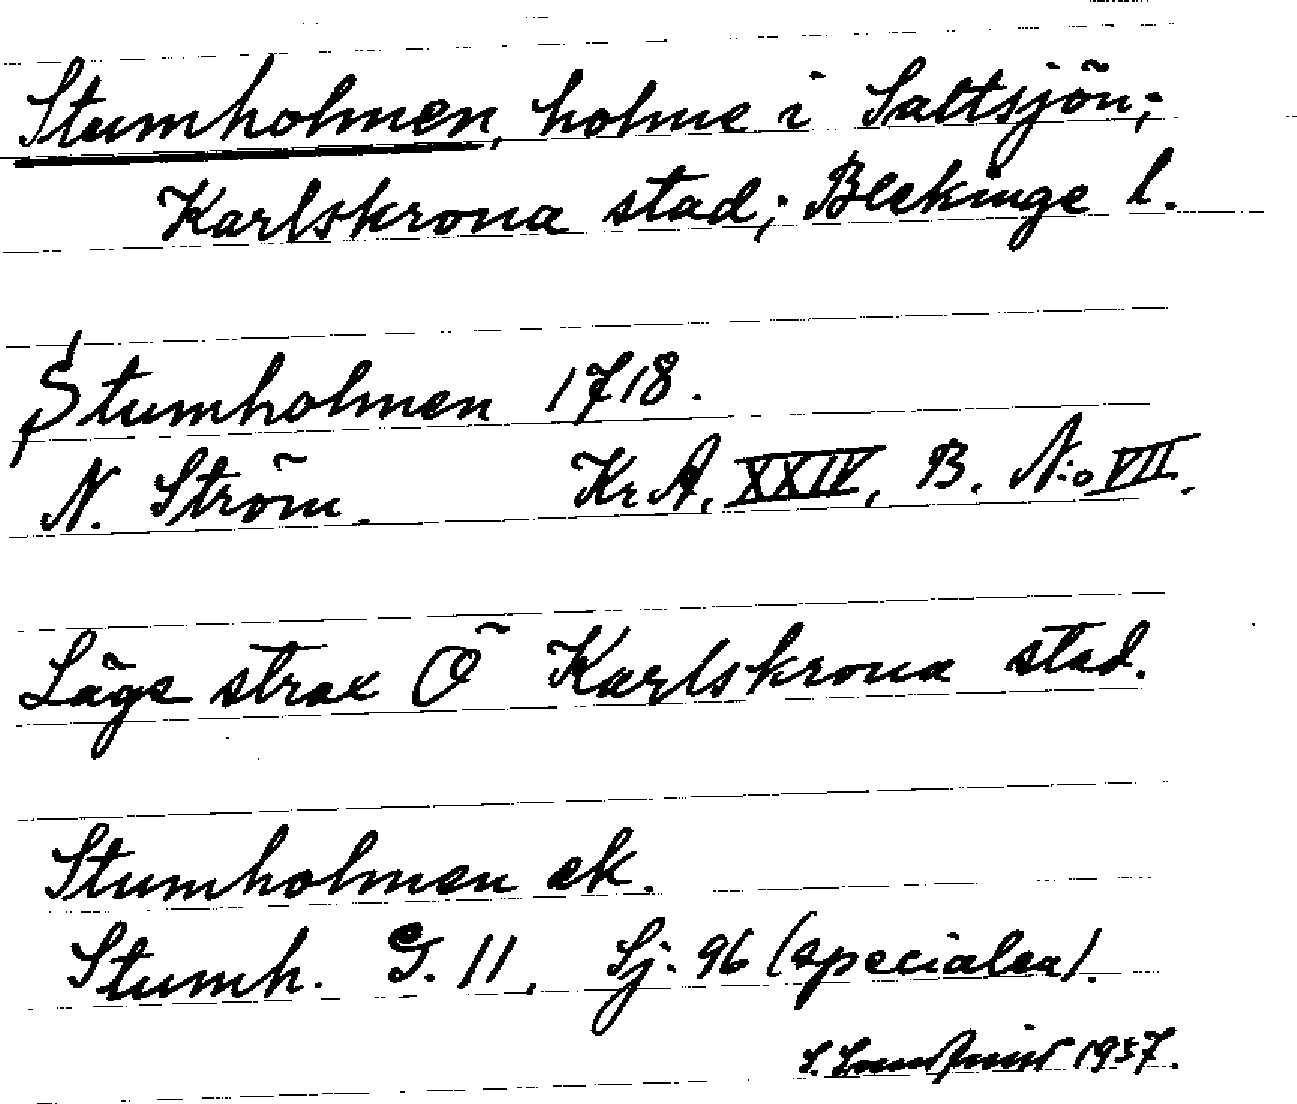 Stumholmen, holme i Saltsjön;
Karlskrona stad; Blekinge l.
Stumholmen 1718.
N. Ström. Kr. A. XXIV, B. N:o VII.
Läge strax Ö Karlskrona stad.
Stumholmen ek.
Stumh. G. 11. Sj. 96 (specialen).
1937.